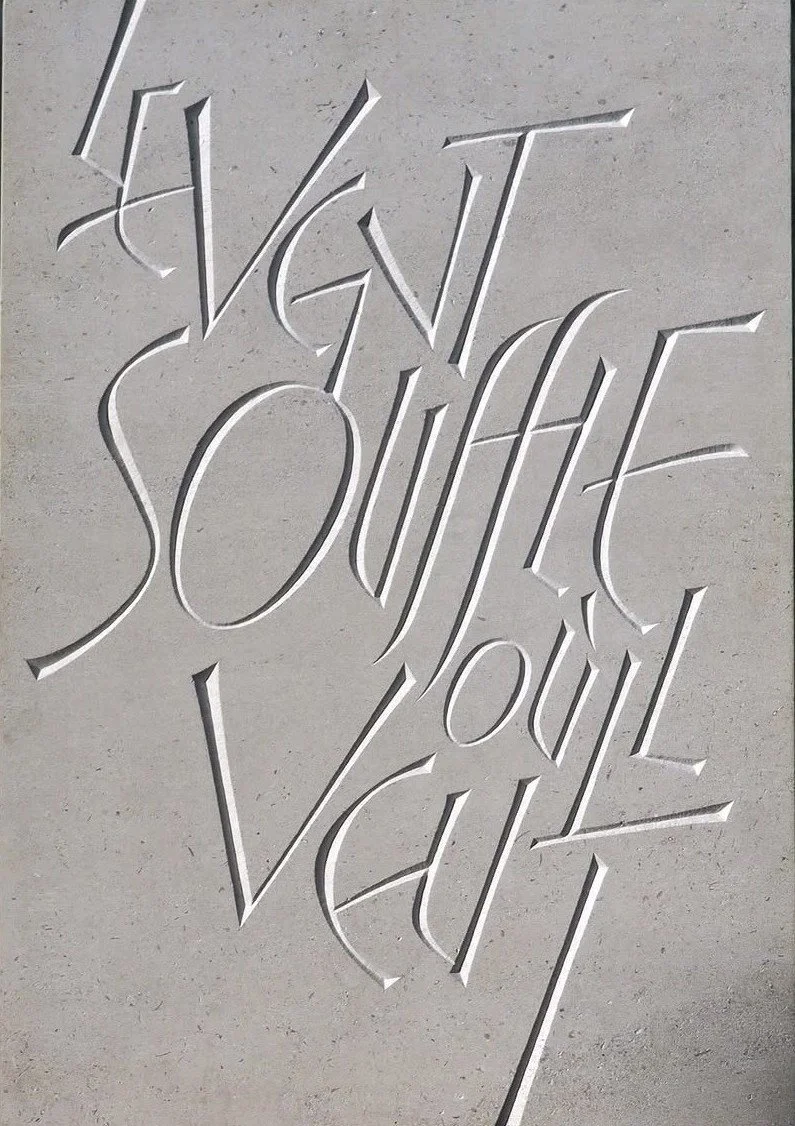 LE VENT
SOUFFLE
OÙ IL
VEUT